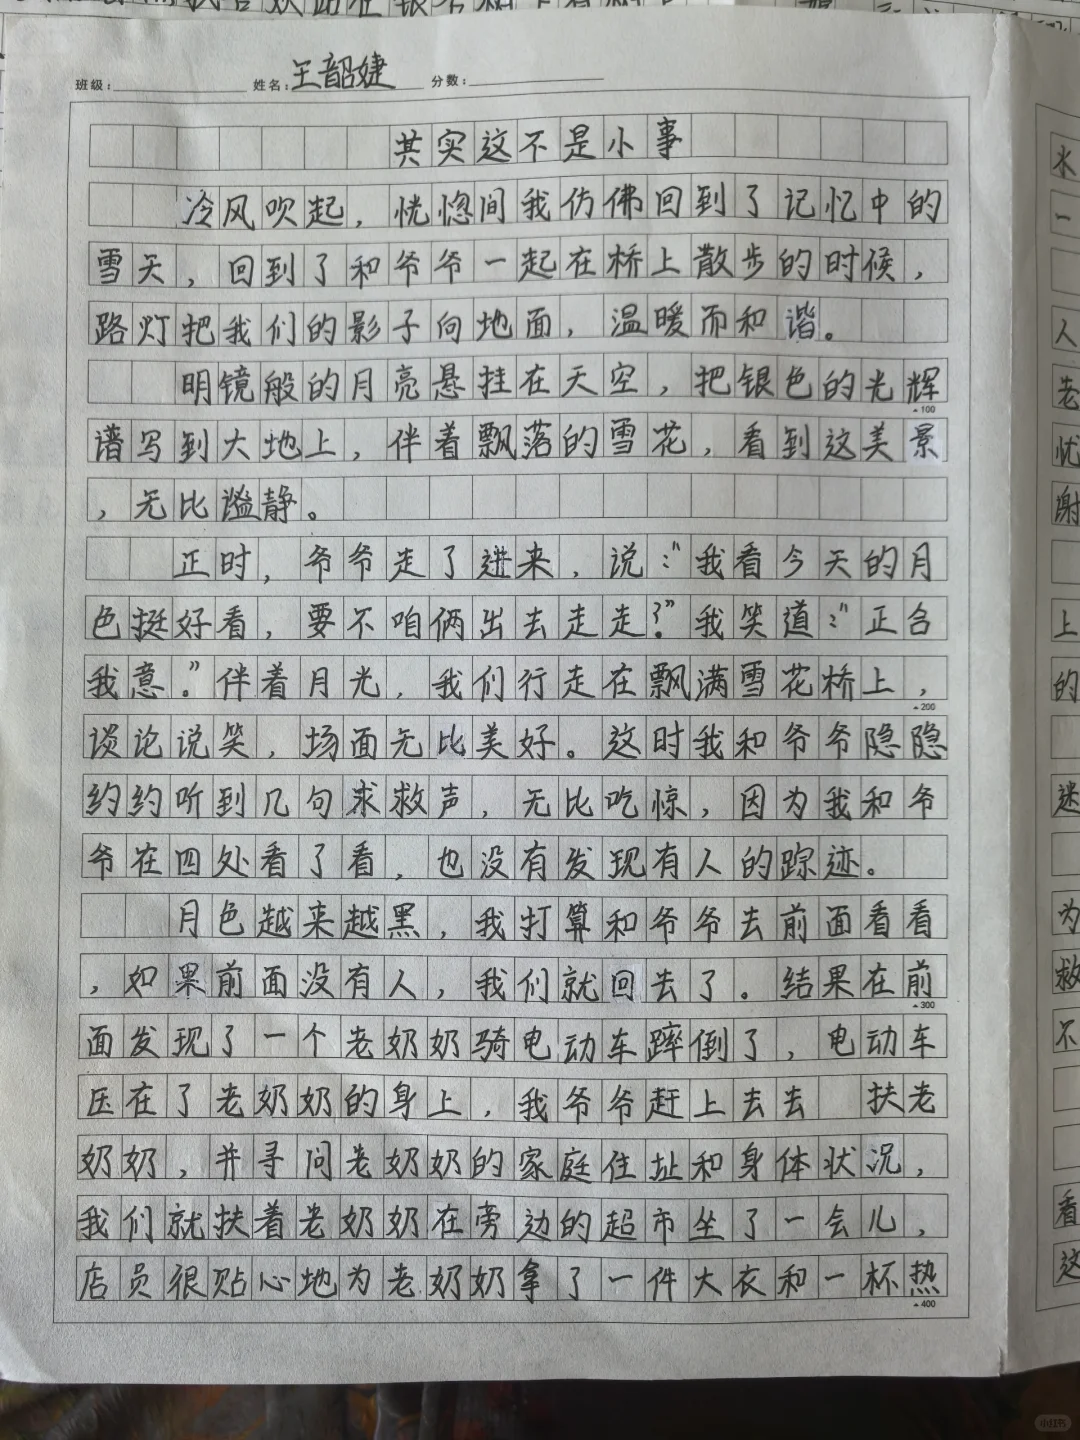 班级： 姓名：王韶婕 分数：
共实这不是小事
冷风吹起，恍惚间我仿佛回到了记忆中的
雪天，回到了和爷爷一起在桥上散步的时候，
路灯把我们的影子向地面，温暖而和谐。
明镜般的月亮悬挂在天空，把银色的光辉
100
谱写到大地上，伴着飘落的雪花，看到这美景
，无比谧静。
正时，爷爷走了进来，说：“我看今天的月
色挺好看，要不咱俩出去走走？”我笑道：“正合
我意。”伴着月光，我们行走在飘满雪花桥上，
200
谈论说笑，场面无比美好。这时我和爷爷隐隐
约约听到几句求救声，无比吃惊，因为我和爷
爷在四处看了看，也没有发现有人的踪迹。
月色越来越黑，我打算和爷爷去前面看看
，如果前面没有人，我们就回去了。结果在前
300
面发现了一个老奶奶骑电动车蹿倒了，电动车
压在了老奶奶的身上，我爷爷赶上去去 扶老
奶奶，并寻问老奶奶的家庭住址和身体状况，
我们就扶着老奶奶在旁边的超市坐了一会儿，
店员很贴心地为老奶奶拿了一件大衣和一杯热
400
水
一
人
老
忧
谢
上
的
迷
为
救
不
看
这